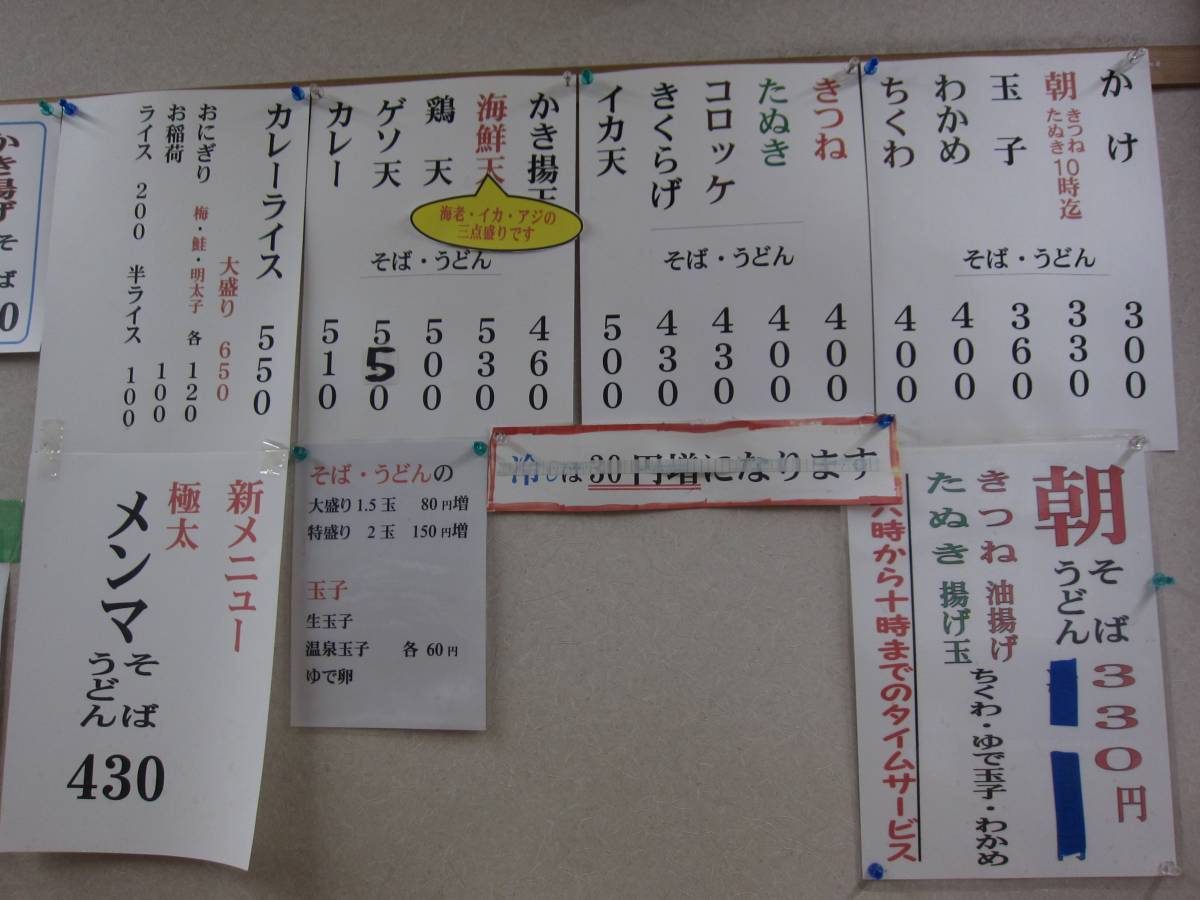 かけ 300
朝 きつね たぬき 10時迄 330
玉子 360
わかめ 400
ちくわ 400
そば・うどん
きつね 400
たぬき 400
コロッケ 430
きくらげ 430
イカ天 500
そば・うどん
かき揚天 460
海鮮天 530
海老・イカ・アジの
三点盛りです
鶏天 500
ゲソ天 550
カレー 510
そば・うどん
カレーライス 550
大盛り 650
おにぎり 梅・鮭・明太子 各 120
お稲荷 100
ライス 200 半ライス 100
かき揚げそば
0
冷しは30円増になります
朝そばうどん 330円
きつね 油揚げ
たぬき 揚げ玉
ちくわ・ゆで玉子・わかめ
六時から十時までのタイムサービス
そば・うどんの
大盛り 1.5 玉 80円増
特盛り 2 玉 150円増
玉子
生玉子
温泉玉子 各 60円
ゆで卵
新メニュー
極太
メンマそばうどん
430